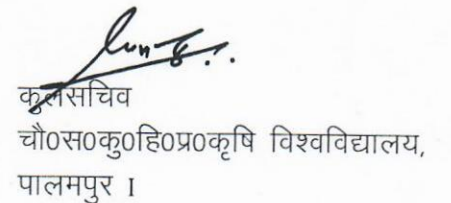 कुलसचिव
चौ0स0कु0हि0प्र0कृषि विश्वविद्यालय,
पालमपुर I